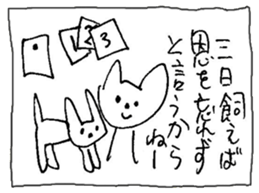 三日飼えば
恩を忘れず
と言うから
ねー
1 2 3